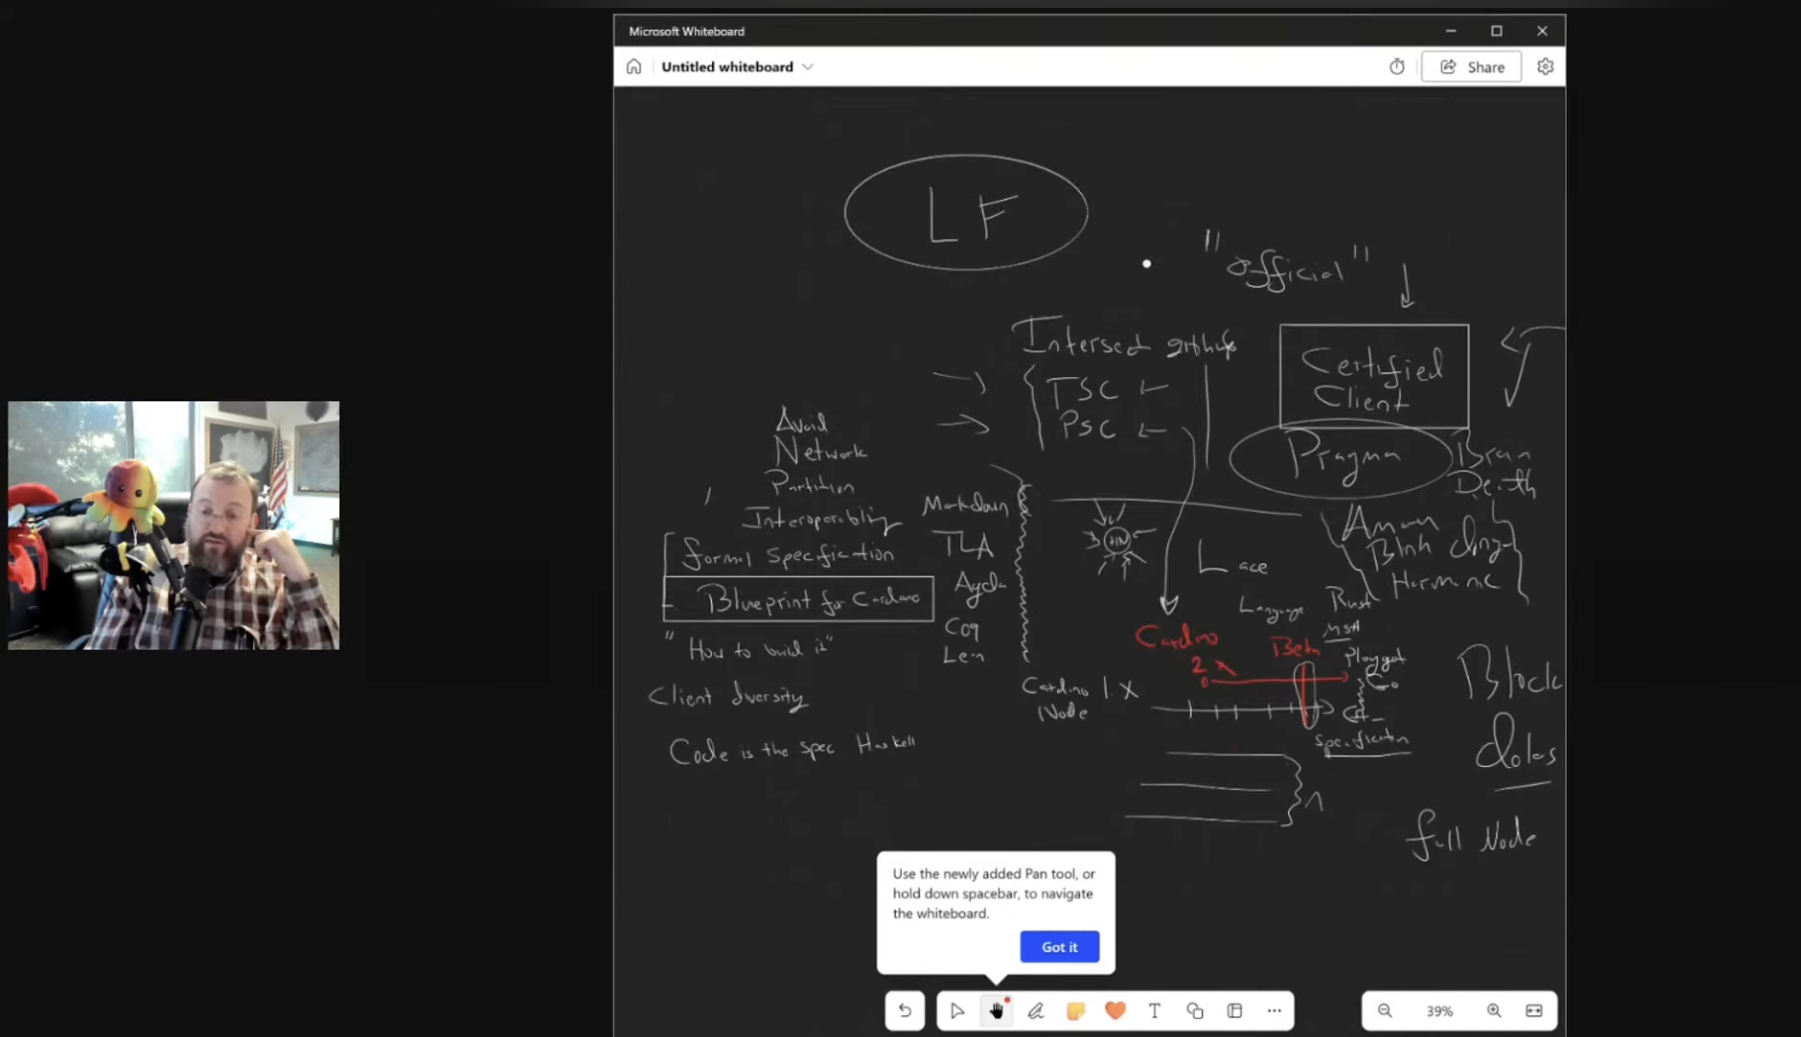 Microsoft Whiteboard
Untitled whiteboard
Share
LF
"official"
Intersect github
TSC
PSC
Certified
Client
Pragma
Brain
Death
Avoid
Network
Partition
Interoperability
formal specification
Blueprint for Cardano
"How to build it"
Client diversity
Code is the spec Haskell
Markdown
TLA
Agda
Coq
Lean
Lace
Language
Rust
Cardano
2.x
Beta
Go
Specification
Cardano 1.x
Node
Blink
Harmonic
Block
full Node
Use the newly added Pan tool, or
hold down spacebar, to navigate
the whiteboard.
Got it
39%